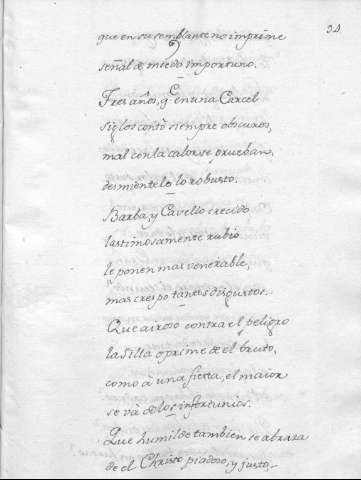 34
que en su semblante no imprime
señal de miedo importuno.
Tres años, q̃ en una Carcel
siglos contò siempre obscuros,
mal con la calor se prueban,
desmientelo lo robusto.
Barba, y Cavello crecido
lastimosamente rubio
le ponen mas venerable,
mas crespo tantos disgustos.
Que airoso contra el peligro
la silla oprime de el bruto,
como à una fiesta, el maior
se va de los infortunios.
Que humilde tambien se abraza
de el Christo piadoso, y justo,